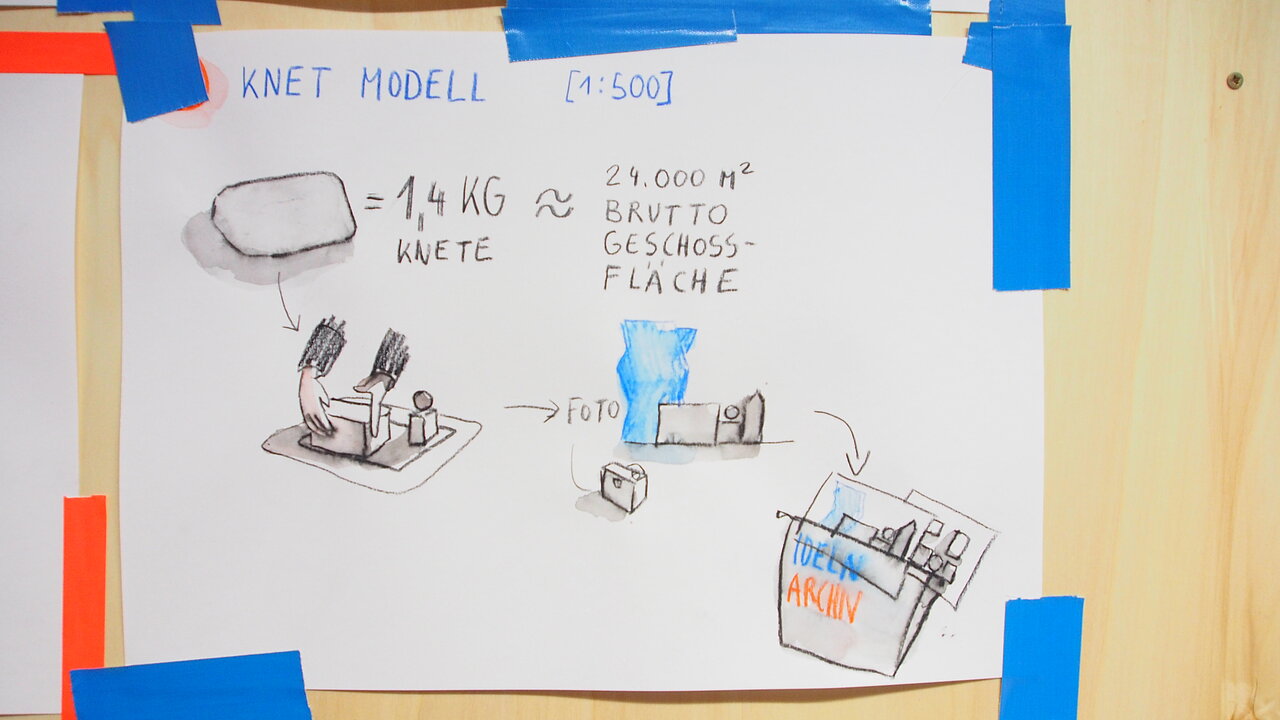 KNET MODELL [1:500]
= 1,4 KG ≈
KNETE
24.000 M²
BRUTTO
GESCHOSS-
FLÄCHE
FOTO
IDEEN
ARCHIV